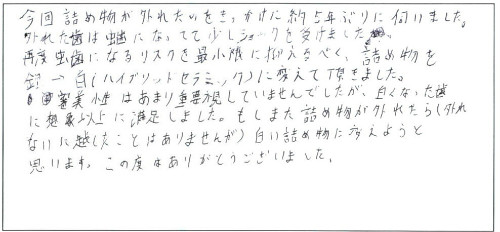 今回詰め物が外れたのをきっかけに約5年ぶりに伺いました。
外れた歯は虫歯になってて少しショックを受けました。
再度虫歯になるリスクを最小限に抑えるべく、詰め物を
銀→白(ハイブリットセラミック)に変えて頂きました。
審美性はあまり重要視していませんでしたが、白くなった歯
に想像以上に満足しました。もしまた詰め物が外れたら(外れ
ないに越したことはありませんが)白い詰め物に変えようと
思います。この度はありがとうございました。